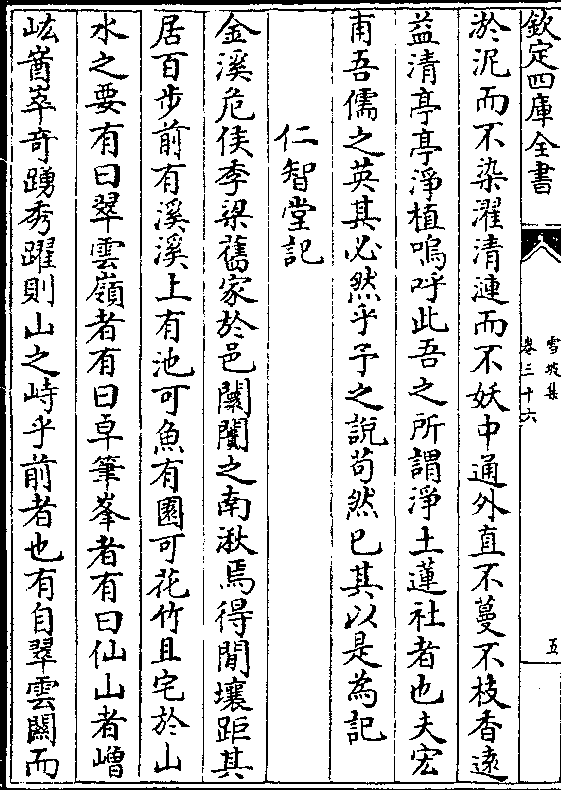 欽定四庫全書
雪坡集
卷三十六
五
於泥而不染濯清漣而不妖中通外直不蔓不枝香遠
益清亭亭淨植嗚呼此吾之所謂淨土蓮社者也夫宏
甫吾儒之英其必然乎予之說苟然已其以是為記
仁智堂記
金溪危侯季梁舊家於邑闤闠之南湫焉得閒壤距其
居百步前有溪溪上有池可魚有園可花竹且宅於山
水之要有曰翠雲嶺者有曰卓筆峯者有曰仙山者嶒
峵崷崒奇踴秀躍則山之峙乎前者也有自翠雲關而